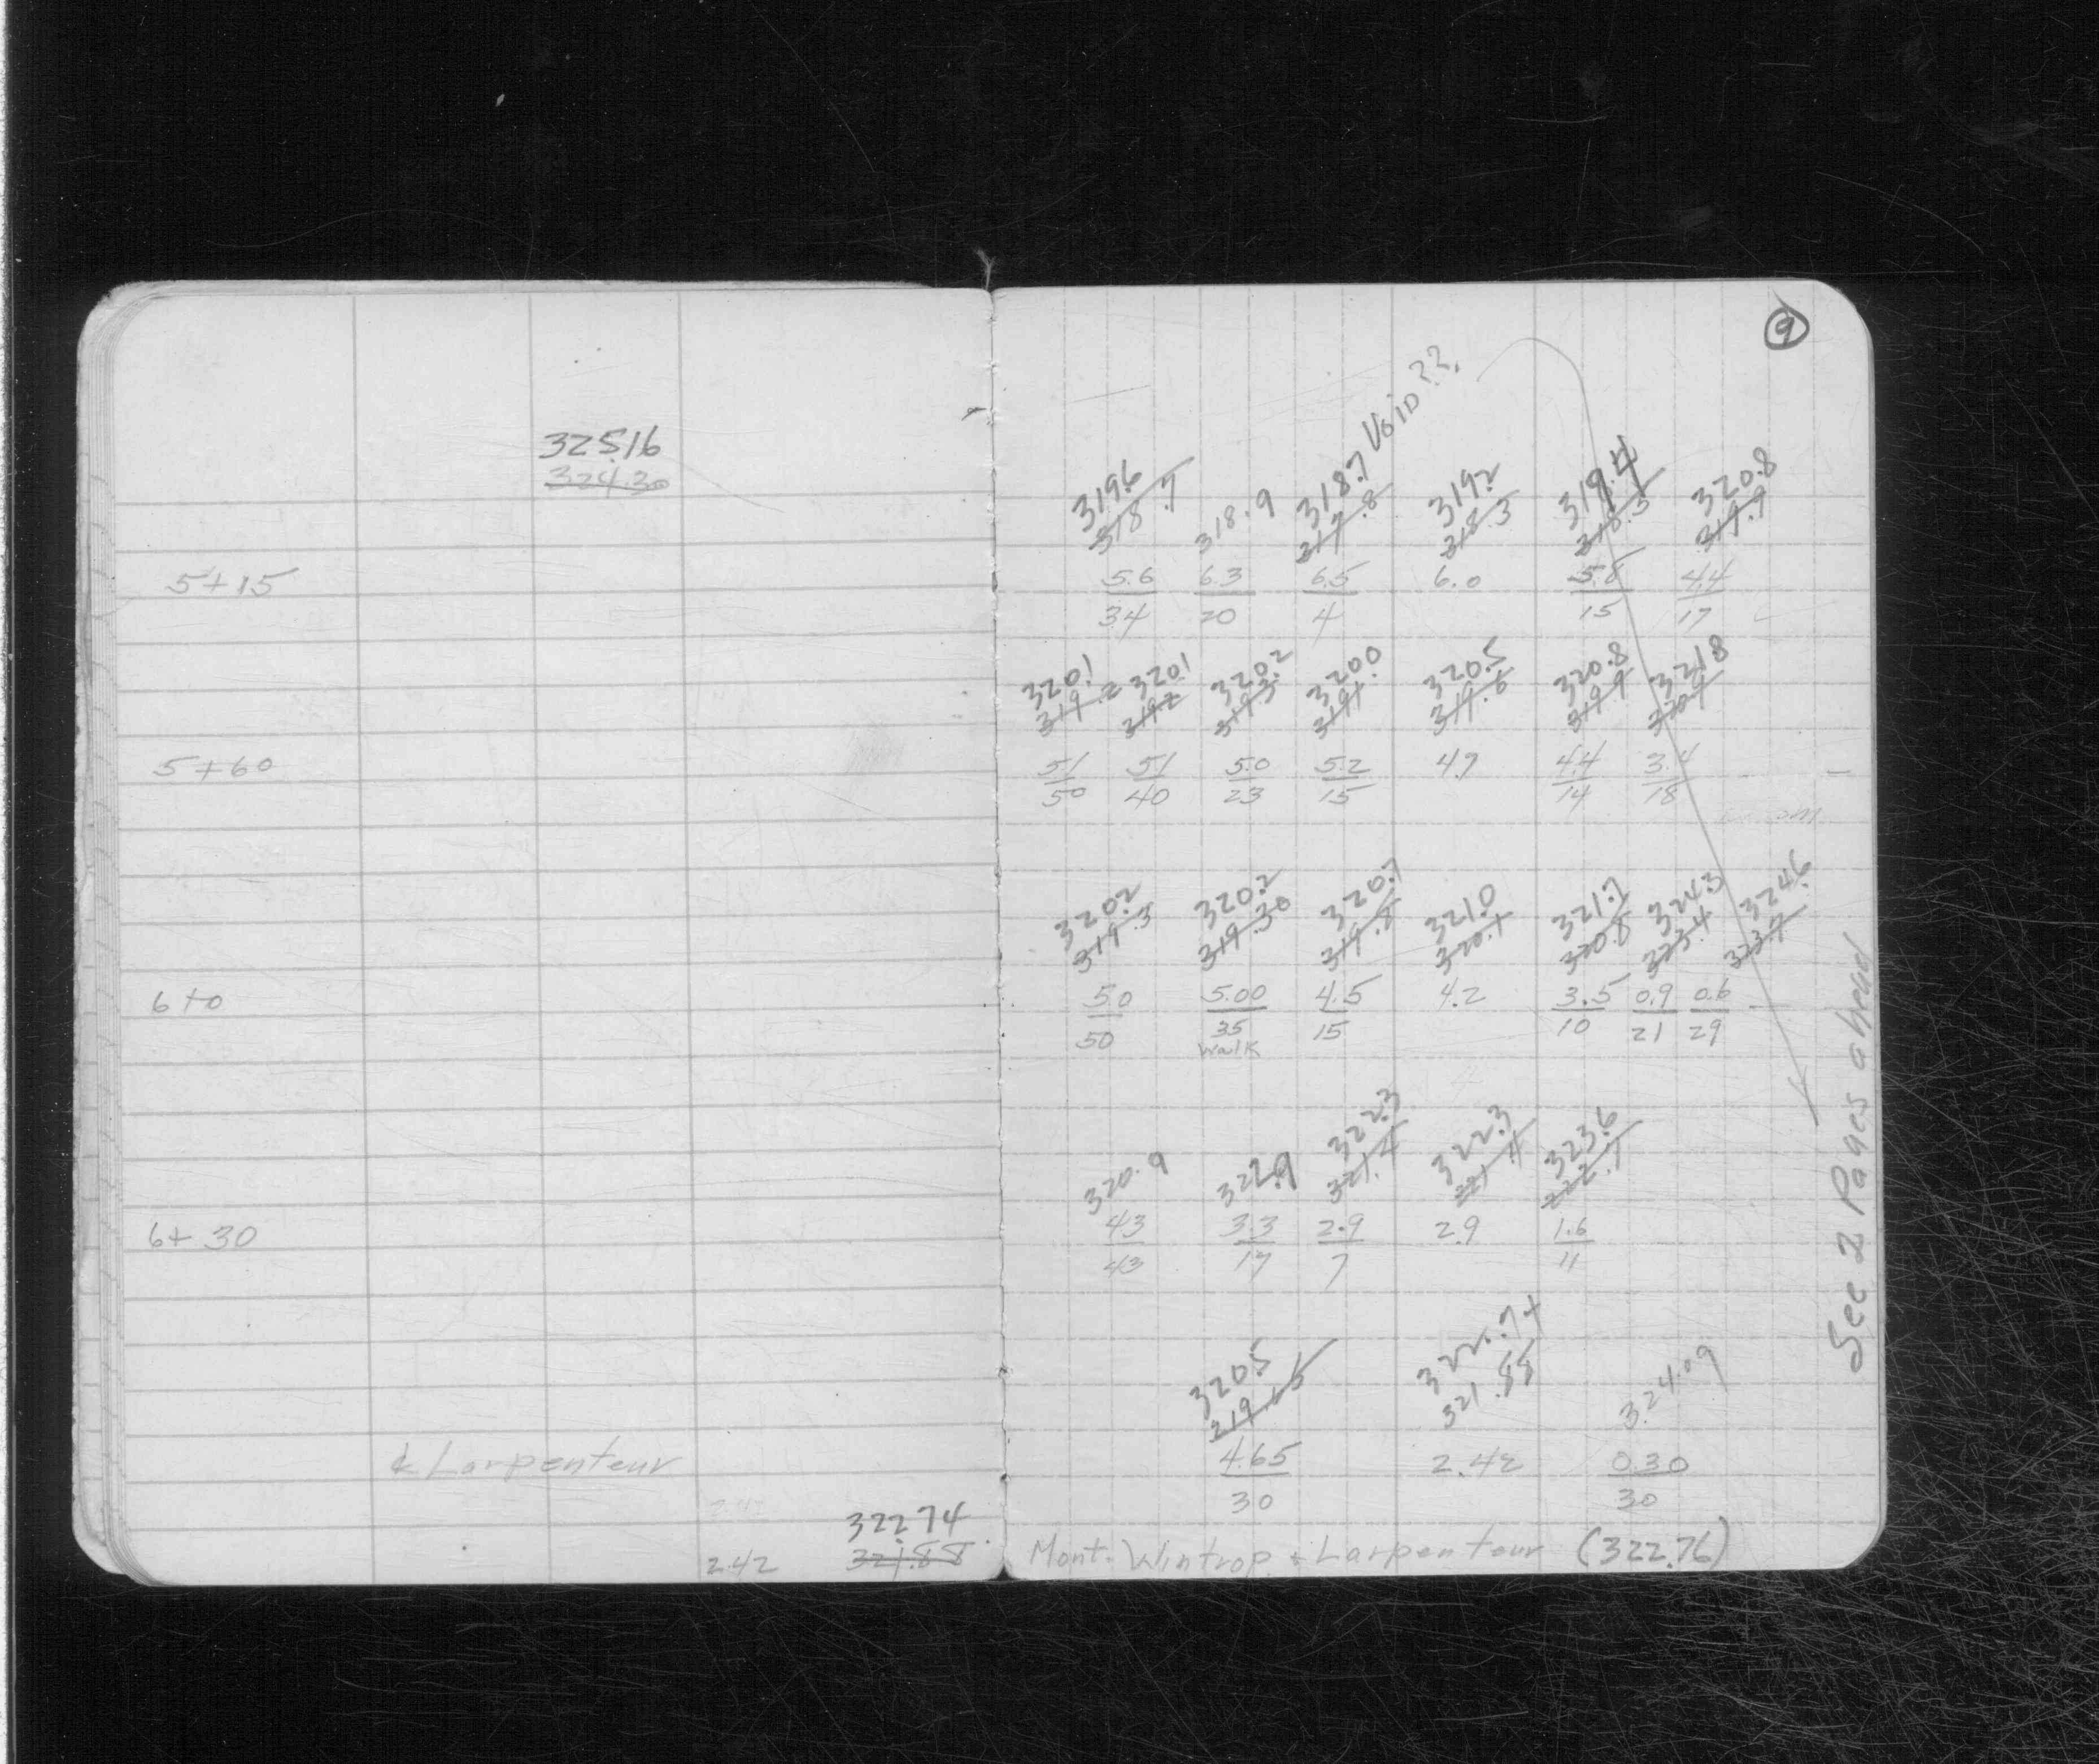 9
325.16
324.30
Void ??.
319.6 318.9 318.7 319.2 319.4 320.8
318.7 317.8 318.3 318.5 319.9
5+15 5.6 6.3 6.5 6.0 5.8 4.4
34 20 4 15 17
320.1 320.1 320.2 320.0 320.5 320.8 321.8
319.2 319.2 319.3 319.1 319.6 319.9 320.9
5+60 5.1 5.1 5.0 5.2 4.7 4.4 3.4
50 40 23 15 14 18
320.2 320.2 320.7 321.0 321.7 324.3 324.6
319.3 319.30 319.8 320.1 320.8 323.4 323.7
6+0 5.0 5.00 4.5 4.2 3.5 0.9 0.6
50 35 15 10 21 29
walk
320.9 322.3 322.3 323.6
321.4 321.4 322.7
6+30 4.3 3.3 2.9 2.9 1.6
43 17 7 11
320.5 322.74 324.09
319.65 321.88
¢ Larpenteur 4.65 2.42 0.30
30 30
2.42
322.74
2.42 321.88 Mont. Wintrop & Larpenteur (322.76)
See 2 Pages ahead